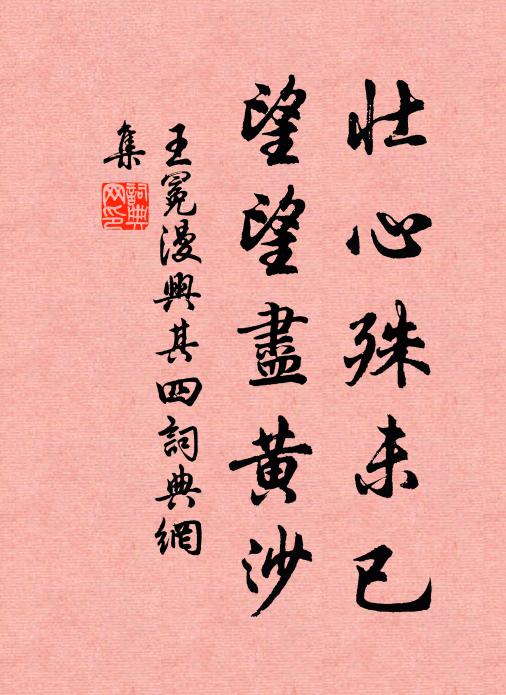 壯心殊未已
望望盡黄沙
王冕漫興其四詞典網
集
詞典
网印